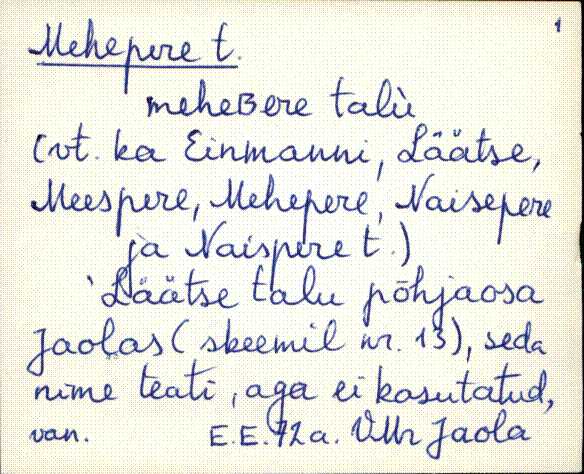 1
Mehepere t.
meheBere talù
(vt. ka Einmanni, Läätse,
Meespere, Mehepere, Naisepere
ja Naispere t.)
`Läätse talu põhjaosa
Jaolas (skeemil nr. 13), seda
nime teati, aga ei kasutatud,
van. E.E. 72 a. VMr Jaola